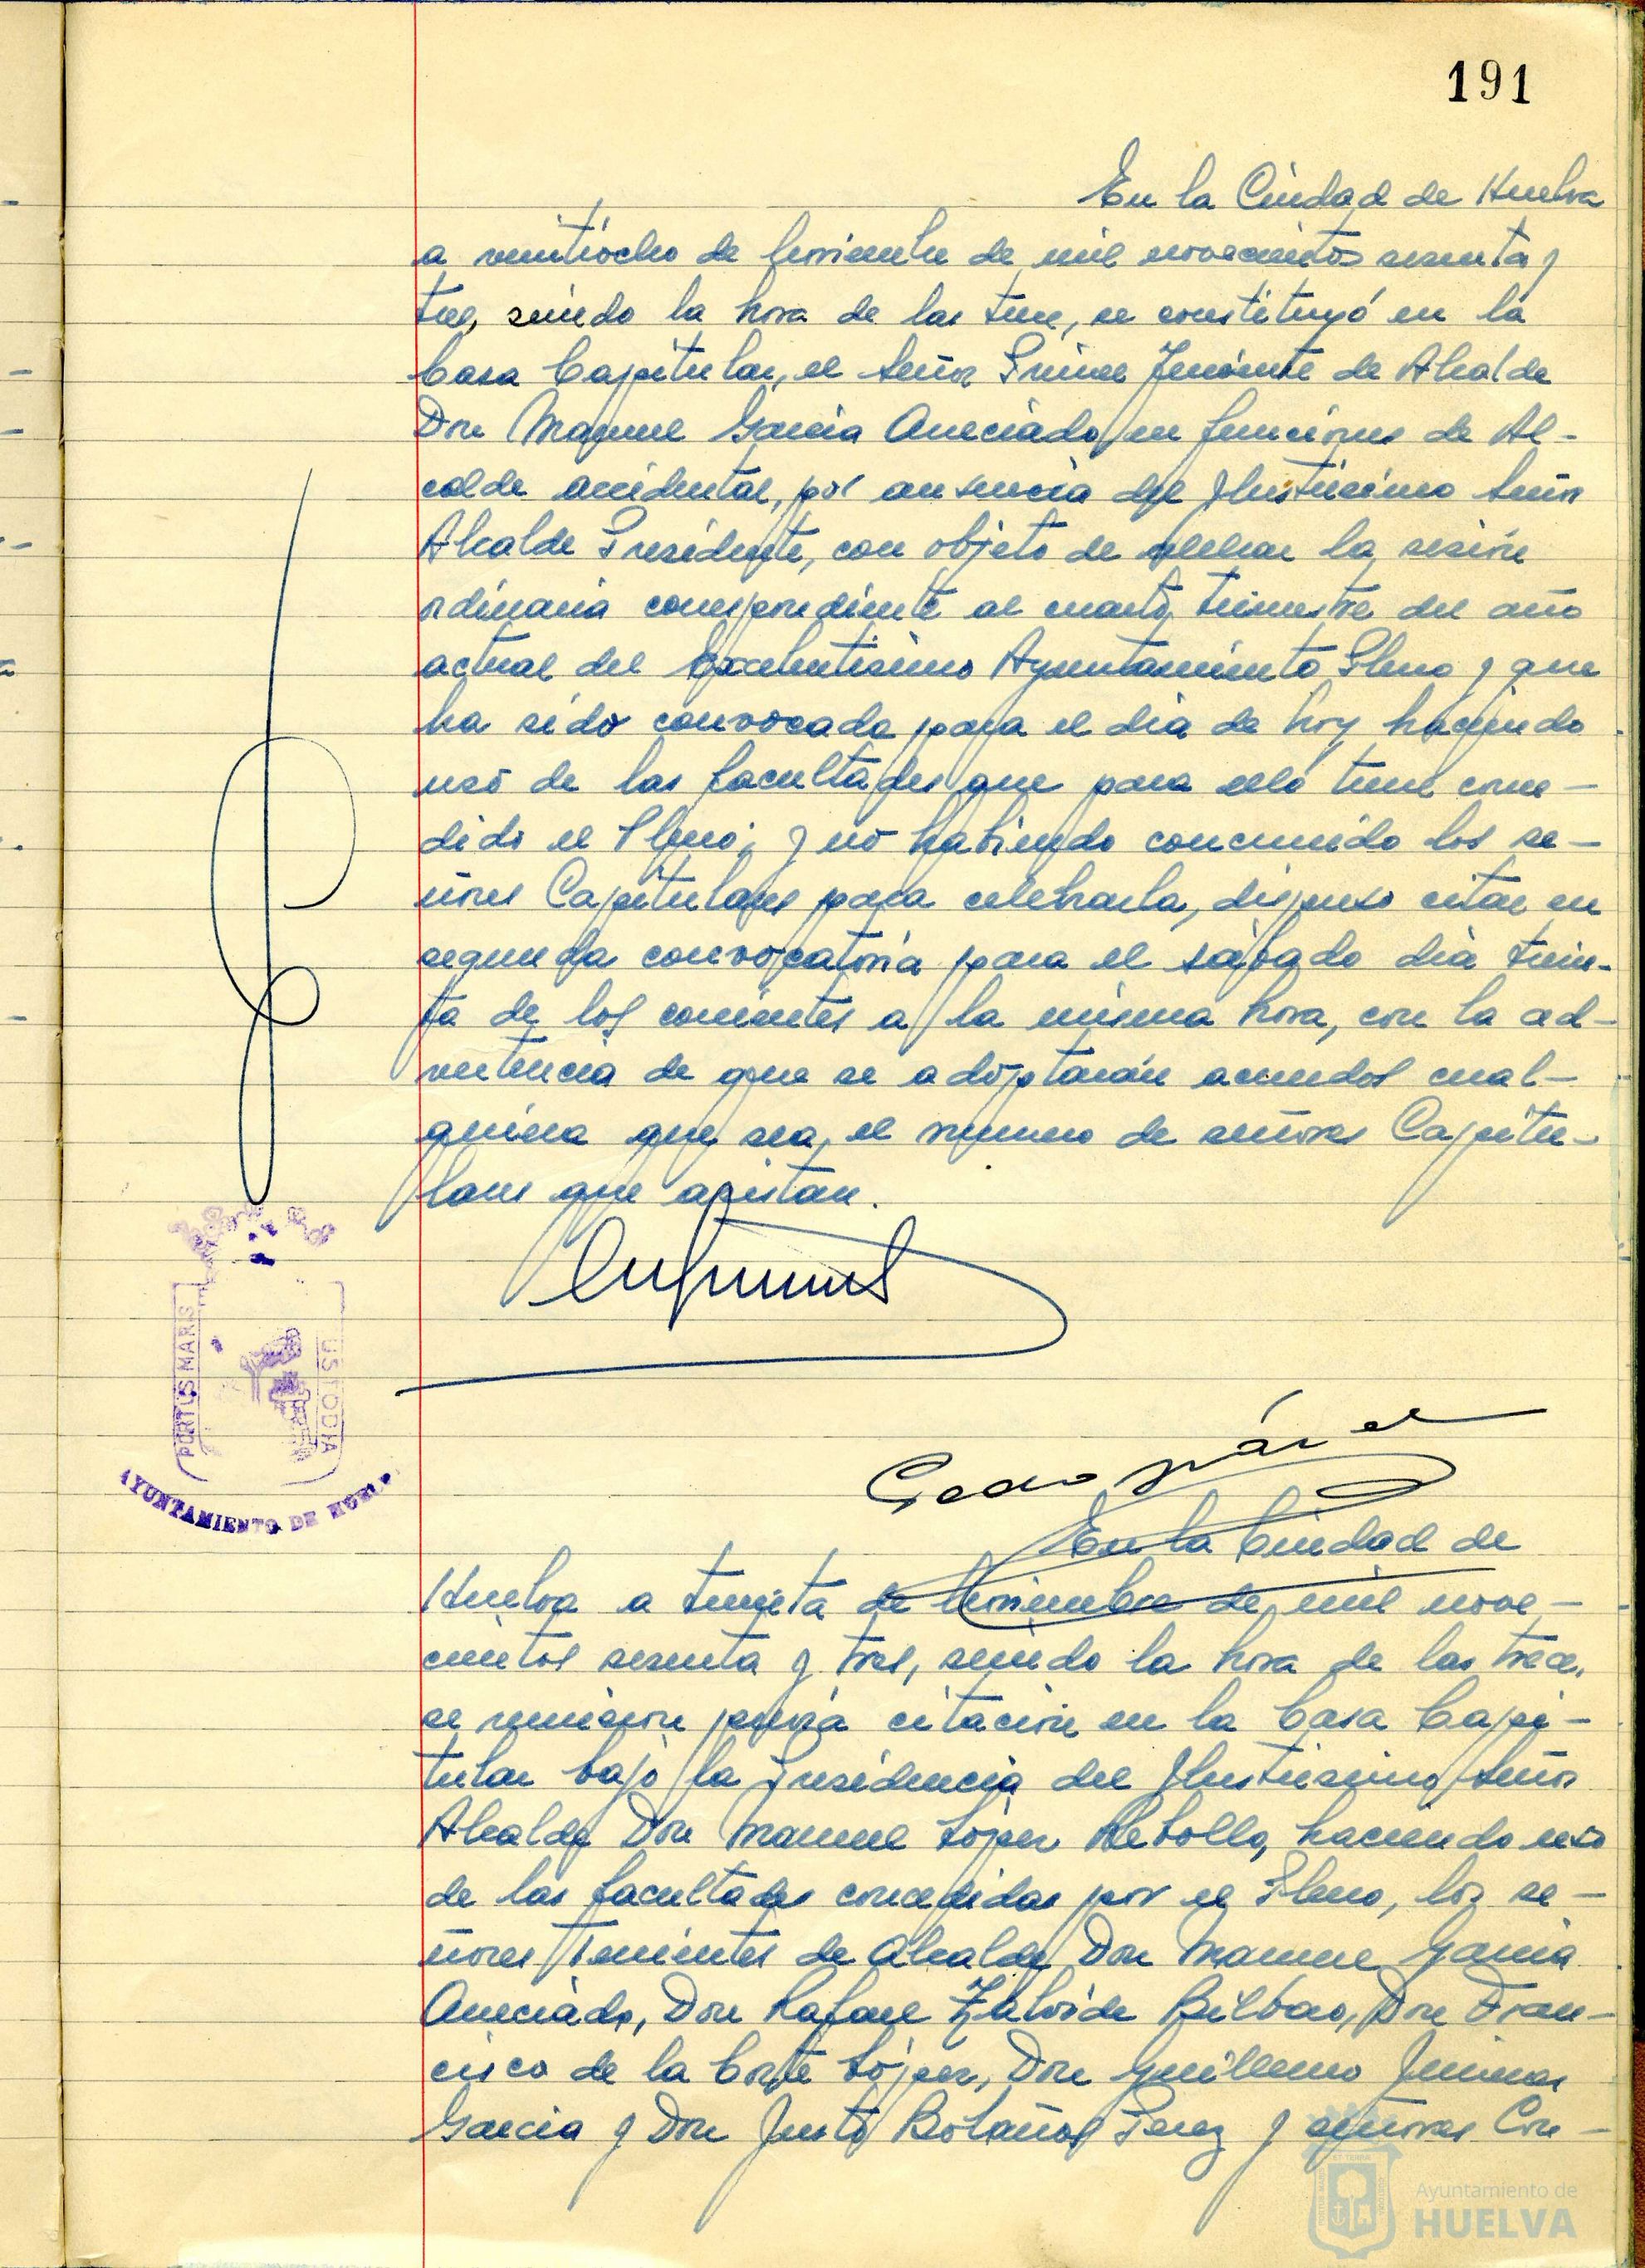 191
En la Ciudad de Huelva
a veintiocho de Noviembre de mil novecientos sesenta y
tres, siendo la hora de las trece, se constituyó en la
Casa Capitular, el Señor Primer Teniente de Alcalde
Don Manuel Garcia Aneciado en funciones de Al-
calde accidental, por ausencia del Ilustrisimo Señor
Alcalde Presidente, con objeto de celebrar la sesión
ordinaria correspondiente al cuarto trimestre del año
actual del Excelentisimo Ayuntamiento Pleno y que
ha sido convocada para el dia de hoy haciendo
uso de las facultades que para ello tiene conce-
dido el Pleno; y no habiendo concurrido los se-
ñores Capitulares para celebrarla, dispuso citar en
segunda convocatoria para el sábado dia trein-
ta de los corrientes a la misma hora, con la ad-
vertencia de que se adoptarán acuerdos cual-
quiera que sea, el numero de señores Capitu-
lares que asistan.
PORTUS MARIS
USTODIA
AYUNTAMIENTO DE HUELVA
En la Ciudad de
Huelva a treinta de Noviembre de mil nove-
cientos sesenta y tres, siendo la hora de las trece,
se reunieron previa citación en la Casa Capi-
tular bajo la Presidencia del Ilustrisimo Señor
Alcalde Don Manuel López Rebollo, haciendo uso
de las facultades concedidas por el Pleno, los se-
ñores Tenientes de Alcalde Don Manuel Garcia
Aneciado, Don Rafael Zalvide Bilbao, Don Fran-
cisco de la Corte López, Don Guillermo Jimenez
Garcia y Don Justo Bolaños Perez y señores Con-
Ayuntamiento de
HUELVA